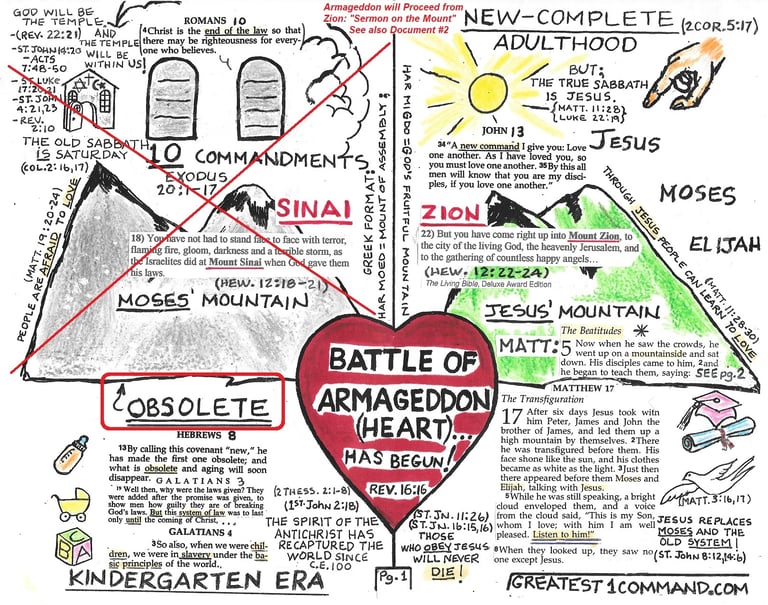 GOD WILL BE
THE TEMPLE
-(REV. 22:21) AND
-ST. JOHN 14:20 THE TEMPLE
-ACTS WILL BE
7:48-50 WITHIN US!
-ST. LUKE
17:20,21
-ST. JOHN
4:21,23
-REV.
2:10
THE OLD SABBATH
IS SATURDAY
(COL. 2:16,17)
ROMANS 10
4Christ is the end of the law so that
there may be righteousness for every-
one who believes.
10 COMMANDMENTS
EXODUS
20:1-17
Armageddon will Proceed from
Zion: "Sermon on the Mount"
See also Document #2
NEW-COMPLETE (2COR. 5:17)
ADULTHOOD
BUT;
THE TRUE SABBATH
IS JESUS.
(MATT. 11:28)
(LUKE 22:19)
JOHN 13
34"A new command I give you: Love
one another. As I have loved you, so
you must love one another. 35By this all
men will know that you are my disci-
ples, if you love one another."
JESUS
MOSES
ELIJAH
THROUGH JESUS PEOPLE CAN LEARN TO LOVE
(MATT. 11:28-30)
PEOPLE ARE AFRAID TO LOVE
(MATT. 19:20-24)
SINAI
18) You have not had to stand face to face with terror,
flaming fire, gloom, darkness and a terrible storm, as
the Israelites did at Mount Sinai when God gave them
his laws.
(HEW. 12:18-21)
MOSES' MOUNTAIN
GREEK FORMAT:
HAR MOED = MOUNT OF ASSEMBLY;
HAR MIGDO = GOD'S FRUITFUL MOUNTAIN
ZION
22) But you have come right up into Mount Zion, to
the city of the living God, the heavenly Jerusalem, and
to the gathering of countless happy angels...
(HEW. 12:22-24)
The Living Bible, Deluxe Award Edition
JESUS' MOUNTAIN
The Beatitudes *
MATT: 5 Now when he saw the crowds, he
went up on a mountainside and sat
down. His disciples came to him, 2and
he began to teach them, saying: SEE pg. 2
BATTLE OF
ARMAGEDDON
(HEART)...
HAS BEGUN!
REV. 16:16
OBSOLETE
HEBREWS 8
13By calling this covenant "new," he
has made the first one obsolete; and
what is obsolete and aging will soon
disappear. GALATIANS 3
19 Well then, why were the laws given? They
were added after the promise was given, to
show men how guilty they are of breaking
God's laws. But this system of law was to last
only until the coming of Christ, ...
GALATIANS 4
3So also, when we were chil-
dren, we were in slavery under the ba-
sic principles of the world..
A
C
B
KINDERGARTEN ERA
(2THESS. 2:1-8)
(1ST. John 2:18)
THE SPIRIT OF THE
ANTICHRIST HAS
RECAPTURED THE
WORLD SINCE
C.E. 100
Pg. 1
(ST. JN. 11:26)
(ST. JN. 16:15,16)
THOSE
WHO OBEY JESUS
WILL NEVER
DIE!
MATTHEW 17
The Transfiguration
17 After six days Jesus took with
him Peter, James and John the
brother of James, and led them up a
high mountain by themselves. 2There
he was transfigured before them. His
face shone like the sun, and his clothes
became as white as the light. 3Just then
there appeared before them Moses and
Elijah, talking with Jesus.
5While he was still speaking, a bright
cloud enveloped them, and a voice
from the cloud said, "This is my Son,
whom I love; with him I am well
pleased. Listen to him!"
8When they looked up, they saw no
one except Jesus.
(MATT. 3:16,17)
JESUS REPLACES
MOSES AND THE
OLD SYSTEM!
(ST. John 8:12,14:6)
GREATEST1COMMAND.COM